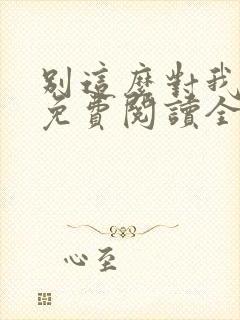 別這麼對我
免費閱讀全
心至